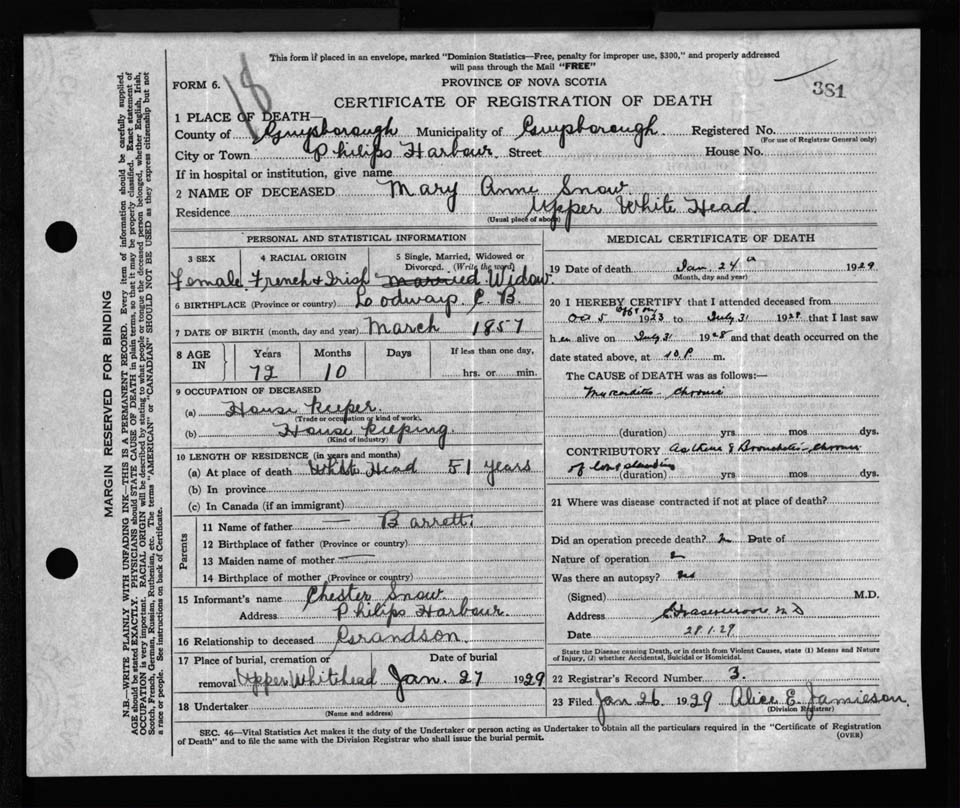 This form if placed in an envelope, marked "Dominion Statistics—Free, penalty for improper use, $300," and properly addressed
will pass through the Mail "FREE"
FORM 6.
18
PROVINCE OF NOVA SCOTIA
381
CERTIFICATE OF REGISTRATION OF DEATH
1 PLACE OF DEATH—
County of Guysborough Municipality of Guysborough Registered No.
(For use of Registrar General only)
City or Town Philips Harbour Street House No.
If in hospital or institution, give name
2 NAME OF DECEASED Mary Anne Snow
Residence Upper White Head.
(Usual place of abode)
PERSONAL AND STATISTICAL INFORMATION
3 SEX 4 RACIAL ORIGIN 5 Single, Married, Widowed or Divorced. (Write the word)
Female French & Irish Married Widow.
6 BIRTHPLACE (Province or country) C. B.
7 DATE OF BIRTH (month, day and year) March 1857
8 AGE IN Years Months Days If less than one day,
72 10 hrs. or min.
9 OCCUPATION OF DECEASED
(a) House Keeper.
(Trade or occupation or kind of work)
(b) House Keeping.
(Kind of industry)
10 LENGTH OF RESIDENCE (in years and months)
(a) At place of death White Head 51 years
(b) In province
(c) In Canada (if an immigrant)
Parents
11 Name of father — Barrett
12 Birthplace of father (Province or country)
13 Maiden name of mother —
14 Birthplace of mother (Province or country)
15 Informant's name Chester Snow
Address Philips Harbour.
16 Relationship to deceased Grandson
17 Place of burial, cremation or Date of burial
removal Upper Whitehead Jan. 27 1929
18 Undertaker
(Name and address)
MEDICAL CERTIFICATE OF DEATH
19 Date of death Jan. 24th 1929
(Month, day and year)
20 I HEREBY CERTIFY that I attended deceased from
1923 to July 31 1928 that I last saw
her alive on July 31 1928 and that death occurred on the
date stated above, at 10 P. m.
The CAUSE OF DEATH was as follows:—
Myocarditis Chronic
(duration) yrs. mos. dys.
CONTRIBUTORY Asthma & Bronchitis Chronic
of long standing
(duration) yrs mos. dys.
21 Where was disease contracted if not at place of death?
Did an operation precede death? Date of
Nature of operation
Was there an autopsy? no
(Signed) M.D.
Address M D
Date 28.1.29
State the Disease causing Death, or in death from Violent Causes, state (1) Means and Nature
of Injury, (2) whether Accidental, Suicidal or Homicidal.
22 Registrar's Record Number 3.
23 Filed Jan 26 1929 Alice E. Jamieson.
(Division Registrar)
SEC. 46—Vital Statistics Act makes it the duty of the Undertaker or person acting as Undertaker to obtain all the particulars required in the "Certificate of Registration
of Death" and to file the same with the Division Registrar who shall issue the burial permit.
(OVER)
MARGIN RESERVED FOR BINDING
N.B.—WRITE PLAINLY WITH UNFADING INK—THIS IS A PERMANENT RECORD. Every item of information should be carefully supplied.
AGE should be stated EXACTLY. PHYSICIANS should STATE CAUSE OF DEATH in plain terms, so that it may be properly classified. Exact statement of
OCCUPATION is very important. RACIAL ORIGIN will be described by stating to what people or tongue the deceased person belonged, whether English, Irish,
Scotch, French, German, Russian, Ruthenian, etc. The terms "AMERICAN" or "CANADIAN" SHOULD NOT BE USED as they express citizenship but not
a race or people. See instructions on back of Certificate.